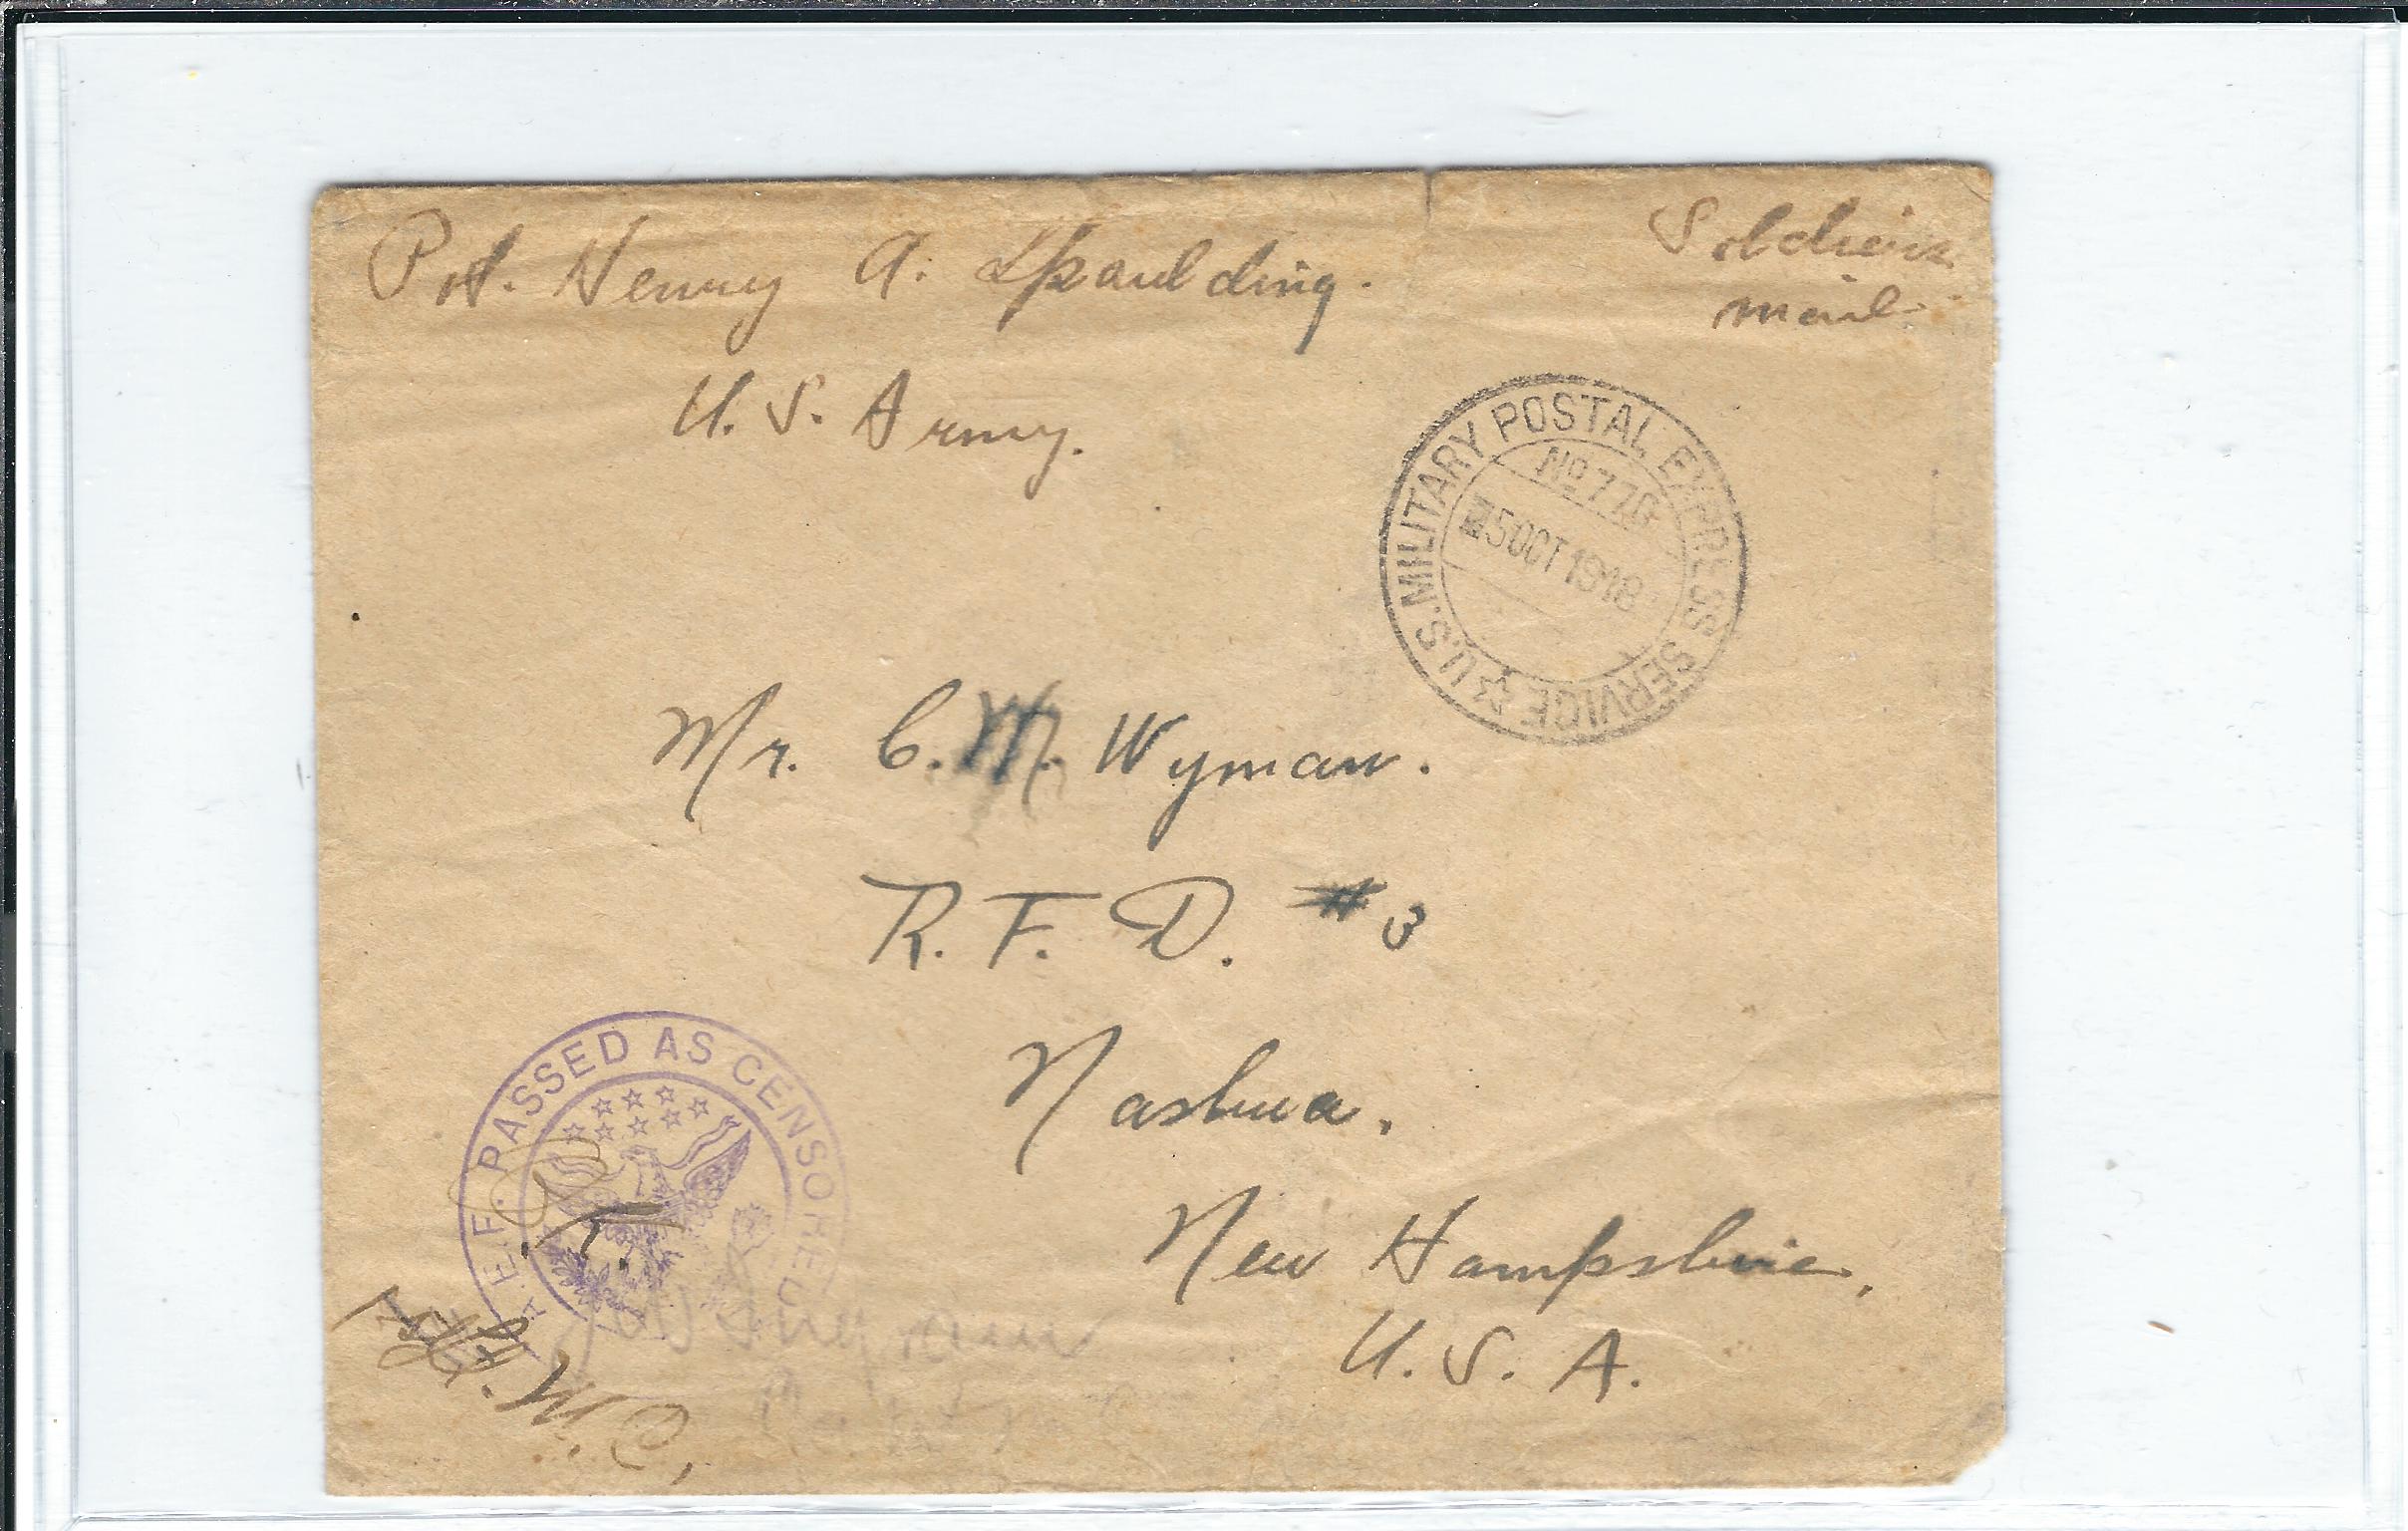 Pvt. Henry A. Spaulding.
U. S. Army.
Soldiers
mail
U.S. MILITARY POSTAL EXPRESS SERVICE
No 
25 OCT 1918
Mr. C. M. Wyman.
R. F. D. #3
Nashua.
New Hampshire,
U. S. A.
A.E.F. PASSED AS CENSORED
M. C.